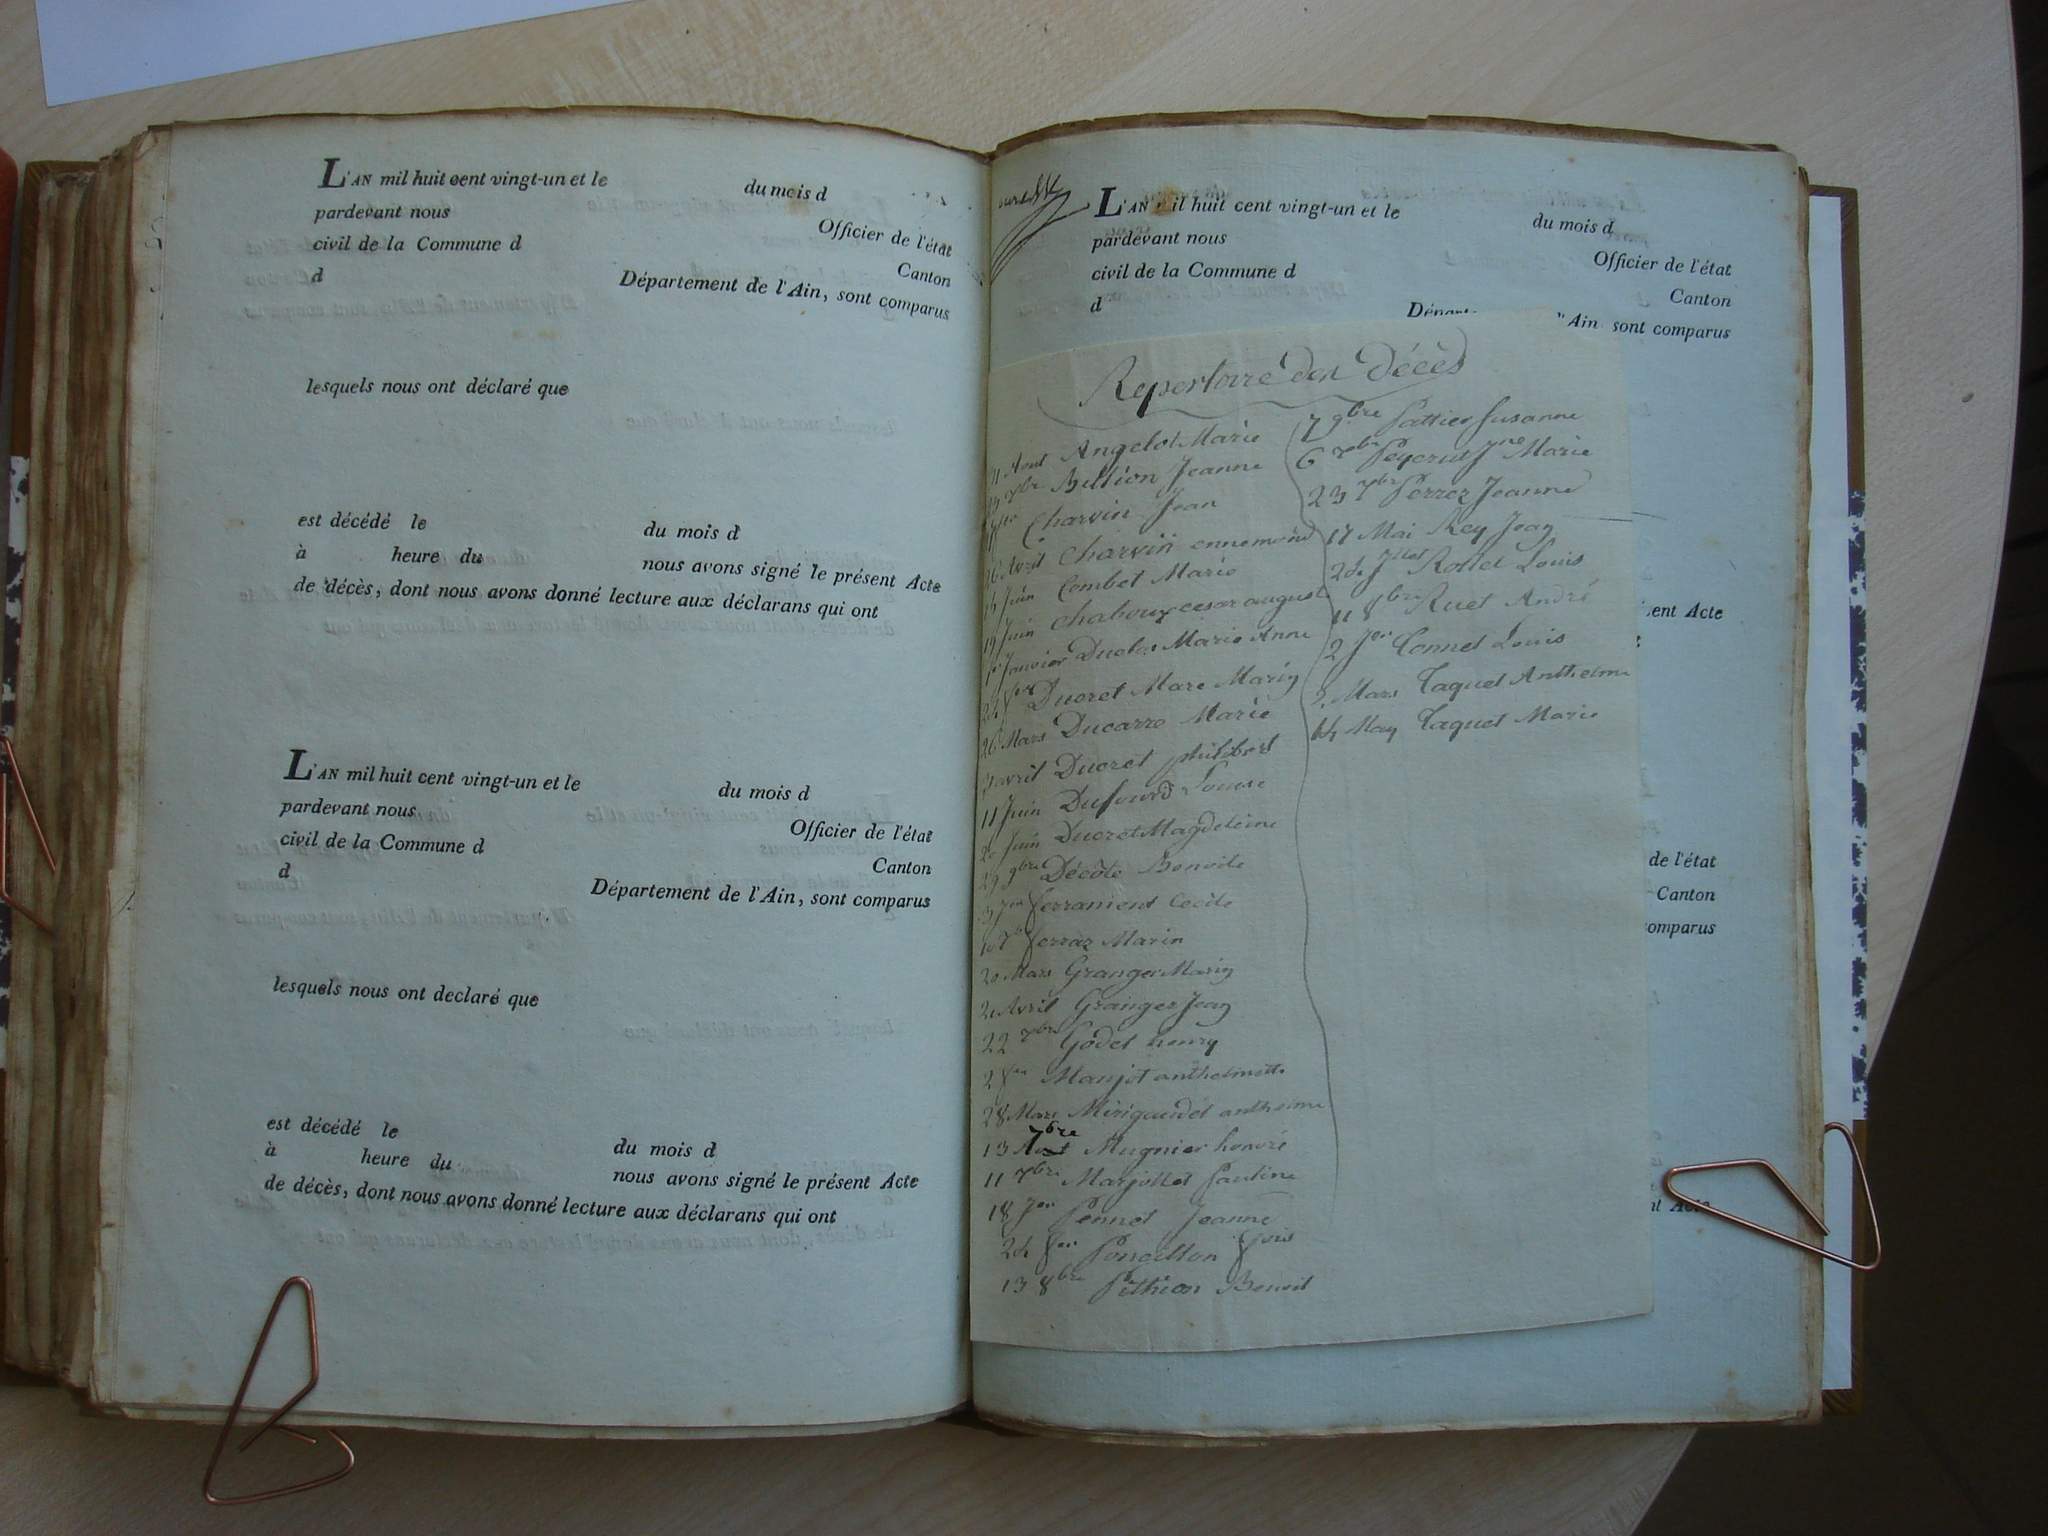 L'AN mil huit cent vingt-un et le du mois d
pardevant nous Officier de l'état
civil de la Commune d Canton
d Département de l'Ain, sont comparus
lesquels nous ont déclaré que
est décédé le du mois d
à heure du nous avons signé le présent Acte
de décès, dont nous avons donné lecture aux déclarans qui ont
L'AN mil huit cent vingt-un et le du mois d
pardevant nous Officier de l'état
civil de la Commune d Canton
d Département de l'Ain, sont comparus
lesquels nous ont declaré que
est décédé le du mois d
à heure du nous avons signé le présent Acte
de décès, dont nous avons donné lecture aux déclarans qui ont
L'AN mil huit cent vingt-un et le du mois d
pardevant nous Officier de l'état
civil de la Commune d Canton
d Ain, sont comparus
Repertoire des Décès
11 Aout Angelot Marie
7bre Billion Jeanne
Charvin Jean
26 Avril Charvin ennemond
Juin Combet Marie
19 Juin Chaboux cesar august
Janvier Duclos Marie Anne
Ducret Marc Marin
26 Mars Ducarre Marie
avril Ducret philibert
11 Juin Dufourd Louise
Juin Ducret Magdeleine
29 9bre Décôte Benoite
Ferranient Cecile
Ferraz Marin
20 Mars Granger Marin
Avril Granger Jean
22 7bre Godet henry
2 Maujot anthelmette
28 Mars Mirigaudet anthelme
13 7bre Mugnier honoré
11 7bre Marjollet Pauline
18 Jer Pennet Jeanne
24 Poncillon fois
13 8bre Pithion Benoit
7 9bre Pattier Susanne
6 Peycrut Jne Marie
23 7bre Perrez Jeanne
17 Mai Rey Jean
24 Jllet Rollet Louis
11 8bre Ruet André
2 Jer Tonnet Louis
2 Mars Taquet Anthelme
14 May Taquet Marie
sent Acte
de l'état
Canton
omparus
nt Acte